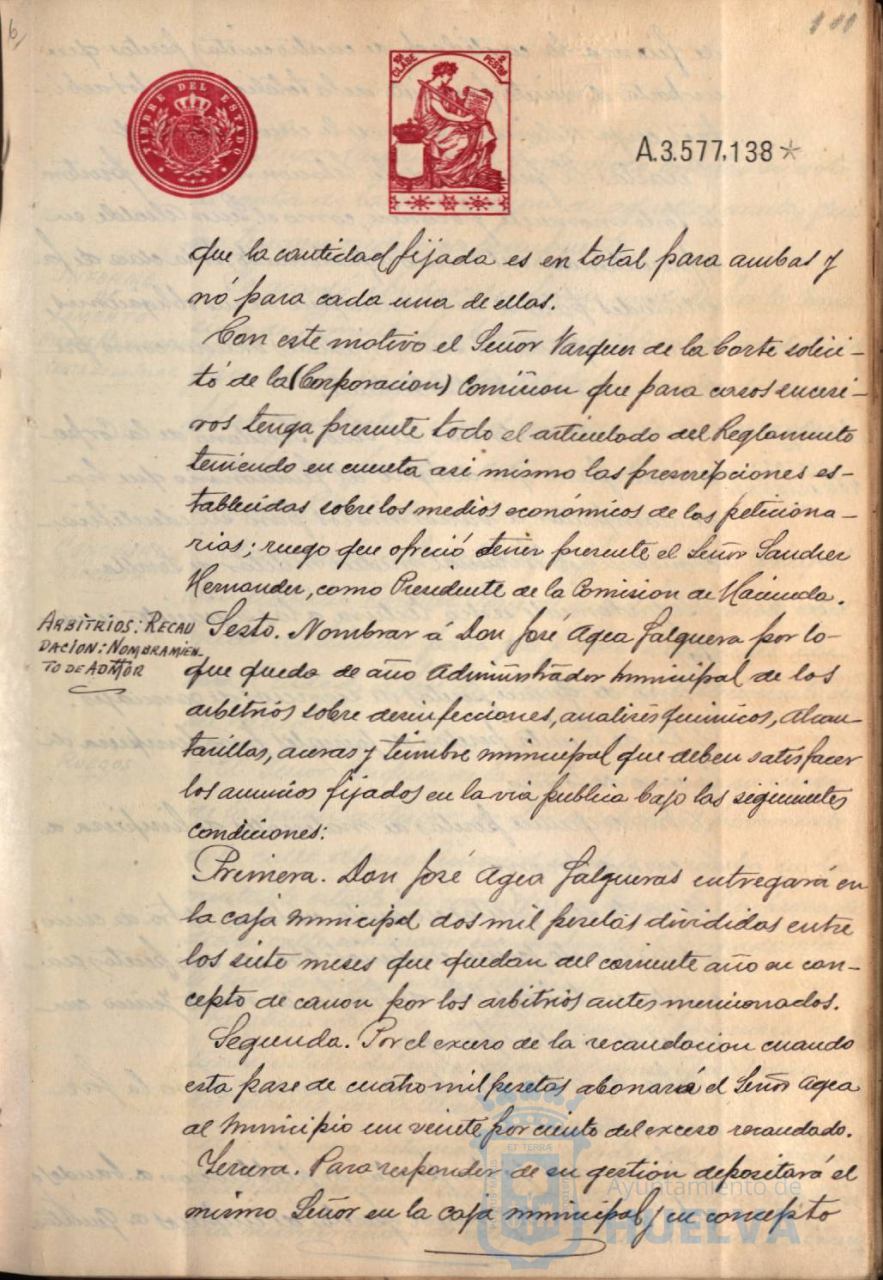 6
111
TIMBRE DEL ESTADO
8ª CLASE
PESETA
A.3.577,138*
que la cantidad fijada es en total para ambas y
nó para cada una de ellas.
Con este motivo el Señor Vazquez de la Corte solici-
tó de la (Corporacion) Comision que para casos sucesi-
vos tenga presente todo el articulado del Reglamento
teniendo en cuenta asi mismo las prescripciones es-
tablecidas sobre los medios económicos de las peticiona-
rias; ruego que ofreció tener presente el Señor Sanchez
Hernandez, como Presidente de la Comision de Hacienda.
ARBITRIOS: RECAU
DACION: NOMBRAMIEN-
TO DE ADMTOR
Sesto. Nombrar á Don José Agea Falguera por lo
que queda de año Administrador municipal de los
arbitrios sobre desinfecciones, analisis quimicos, alcan-
tarillas, aceras y timbre municipal que deben satisfacer
los anuncios fijados en la via publica bajo las siguientes
condiciones:
Primera. Don José Agea Falgueras entregará en
la caja municipal dos mil pesetas divididas entre
los siete meses que quedan del corriente año en con-
cepto de canon por los arbitrios antes mencionados.
Segunda. Por el exceso de la recaudacion cuando
esta pase de cuatro mil pesetas abonará el Señor Agea
al Municipio un veinte por ciento del exceso recaudado.
Tercera. Para responder de su gestion depositará el
mismo Señor en la caja municipal, en concepto
ET TERRÆ
Ayuntamiento de
HUELVA